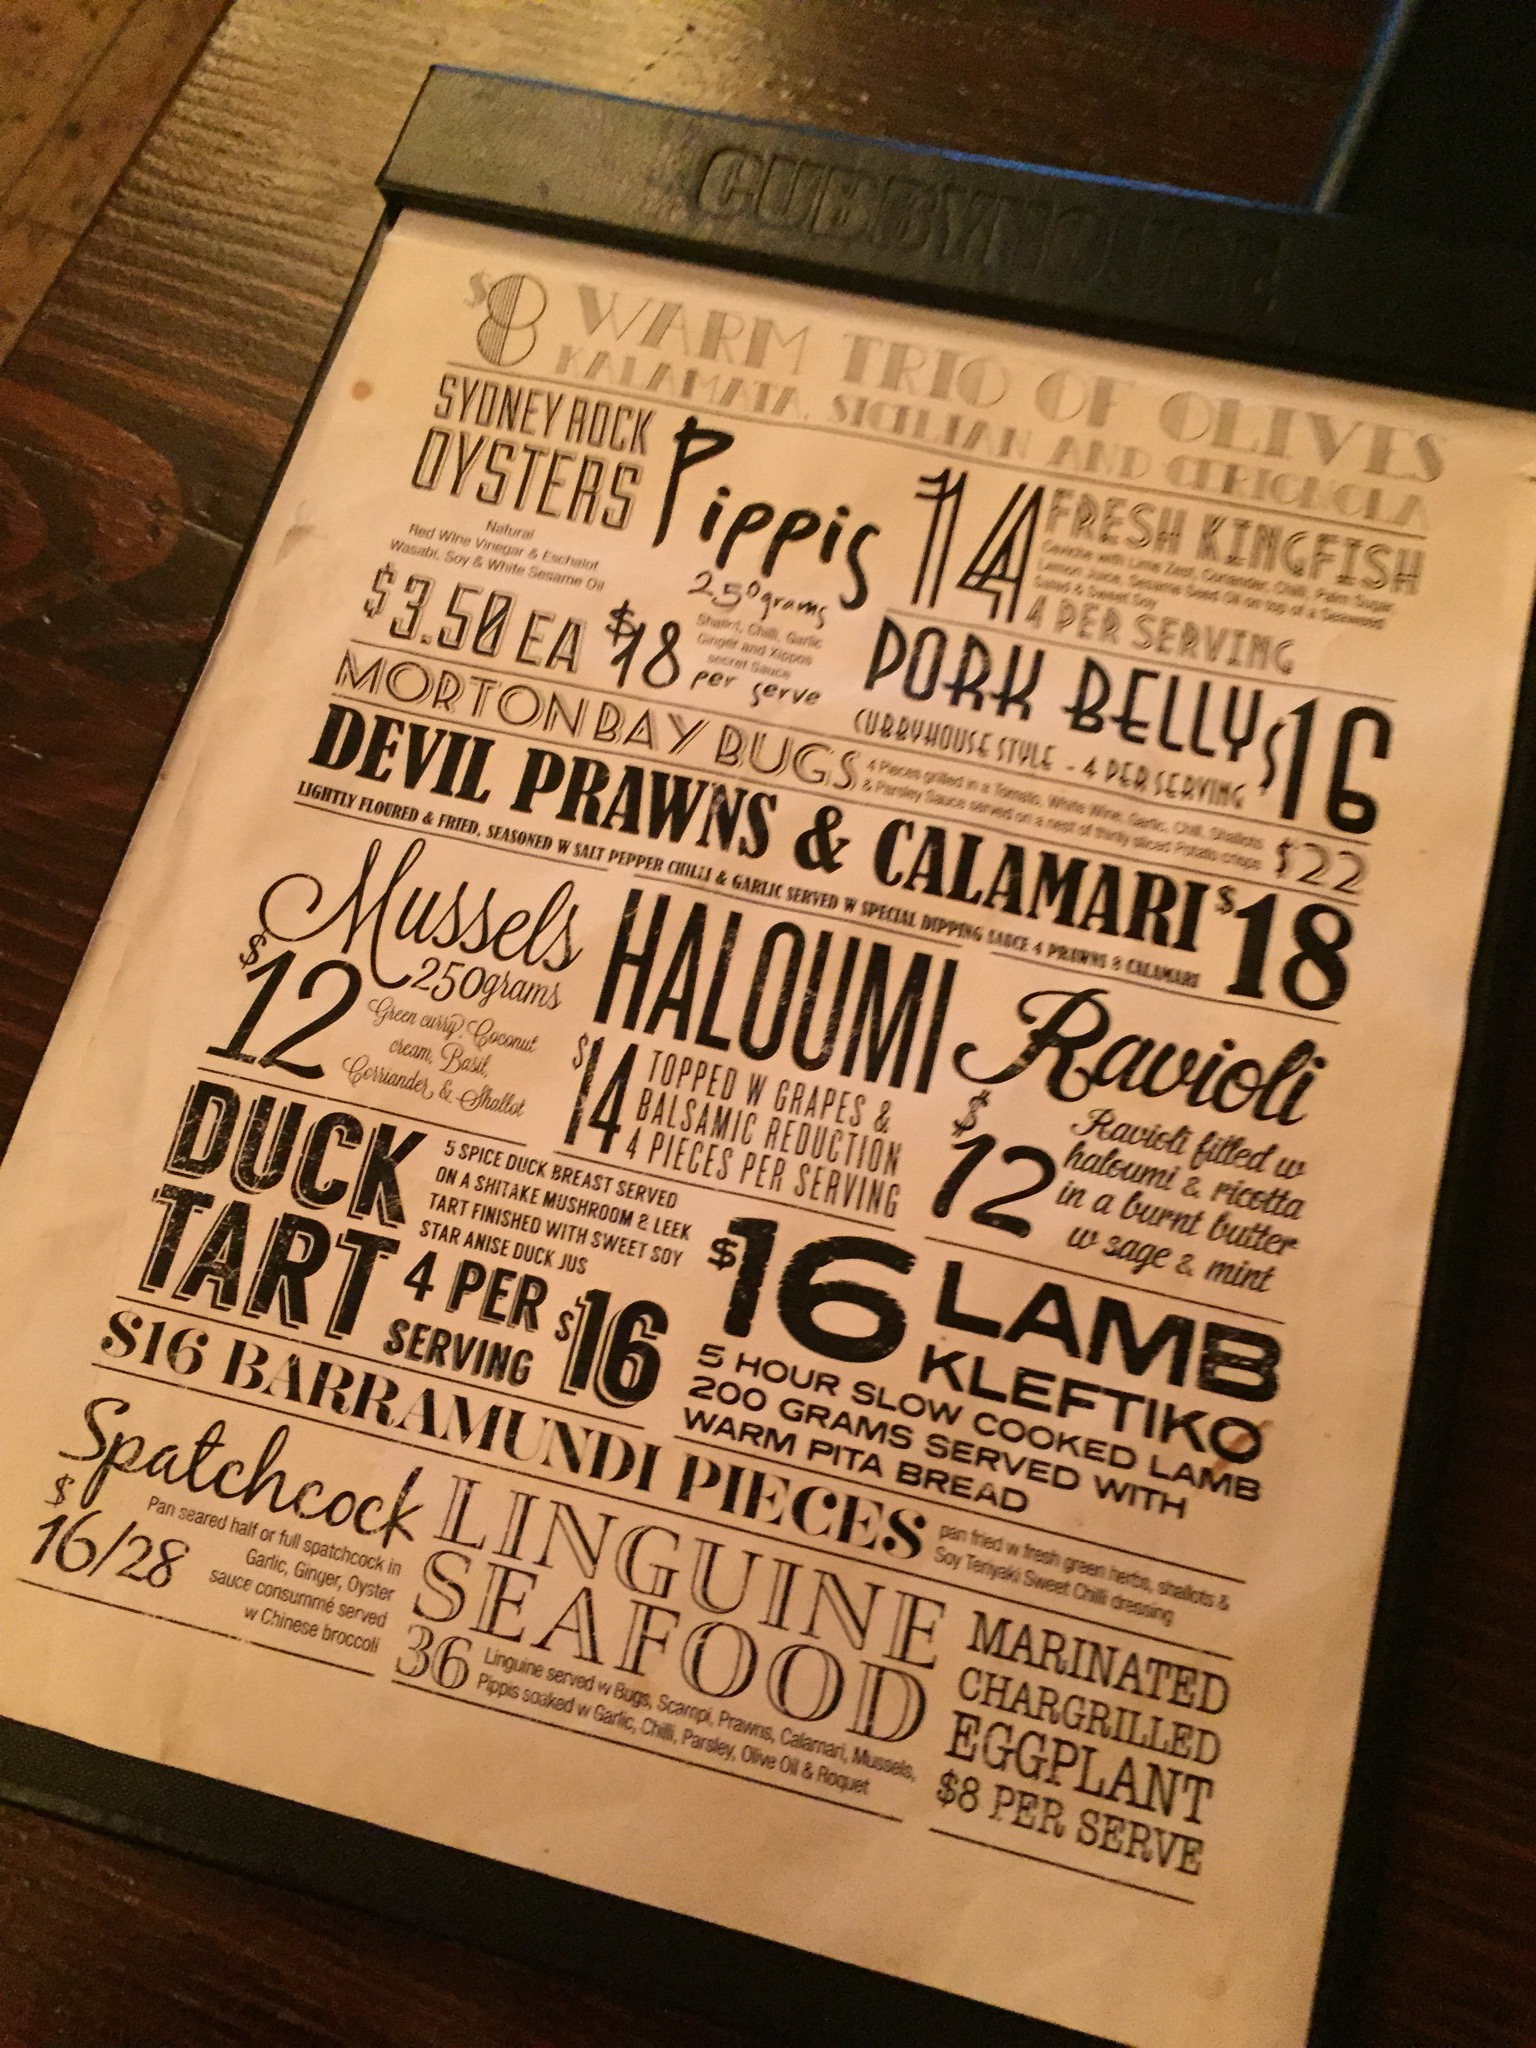 CUBBYHOUSE
$8 WARM TRIO OF OLIVES
KALAMATA, SICILIAN AND CERIGNOLA
SYDNEY ROCK
OYSTERS
Natural
Red Wine Vinegar & Eschalot
Wasabi, Soy & White Sesame Oil
$3.50 EA
Pippis
250grams
$18
Shallot, Chilli, Garlic
Ginger and Xippos
secret Sauce
per serve
14 FRESH KINGFISH
Ceviche with Lime Zest, Coriander, Chilli, Palm Sugar,
Lemon Juice, Sesame Seed Oil on top of a Seaweed
Salad & Sweet Soy
4 PER SERVING
PORK BELLY $16
CUBBYHOUSE STYLE - 4 PER SERVING
MORTON BAY BUGS
4 Pieces grilled in a Tomato, White Wine, Garlic, Chilli, Shallots
& Parsley Sauce served on a nest of thinly sliced Potato crisps
$22
DEVIL PRAWNS & CALAMARI $18
LIGHTLY FLOURED & FRIED, SEASONED W SALT PEPPER CHILLI & GARLIC SERVED W SPECIAL DIPPING SAUCE 4 PRAWNS 8 CALAMARI
Mussels
250grams
$12
Green curry, Coconut
cream, Basil,
Corriander, & Shallot
HALOUMI
$14
TOPPED W GRAPES &
BALSAMIC REDUCTION
4 PIECES PER SERVING
Ravioli
$12
Ravioli filled w
haloumi & ricotta
in a burnt butter
w sage & mint
DUCK
TART
5 SPICE DUCK BREAST SERVED
ON A SHITAKE MUSHROOM & LEEK
TART FINISHED WITH SWEET SOY
STAR ANISE DUCK JUS
4 PER
SERVING
$16
$16 LAMB
KLEFTIKO
5 HOUR SLOW COOKED LAMB
200 GRAMS SERVED WITH
WARM PITA BREAD
$16 BARRAMUNDI PIECES
pan fried w fresh green herbs, shallots &
Soy Teriyaki Sweet Chilli dressing
Spatchcock
$16/28
Pan seared half or full spatchcock in
Garlic, Ginger, Oyster
sauce consummé served
w Chinese broccoli
LINGUINE
SEAFOOD
36
Linguine served w Bugs, Scampi, Prawns, Calamari, Mussels,
Pippis soaked w Garlic, Chilli, Parsley, Olive Oil & Roquet
MARINATED
CHARGRILLED
EGGPLANT
$8 PER SERVE